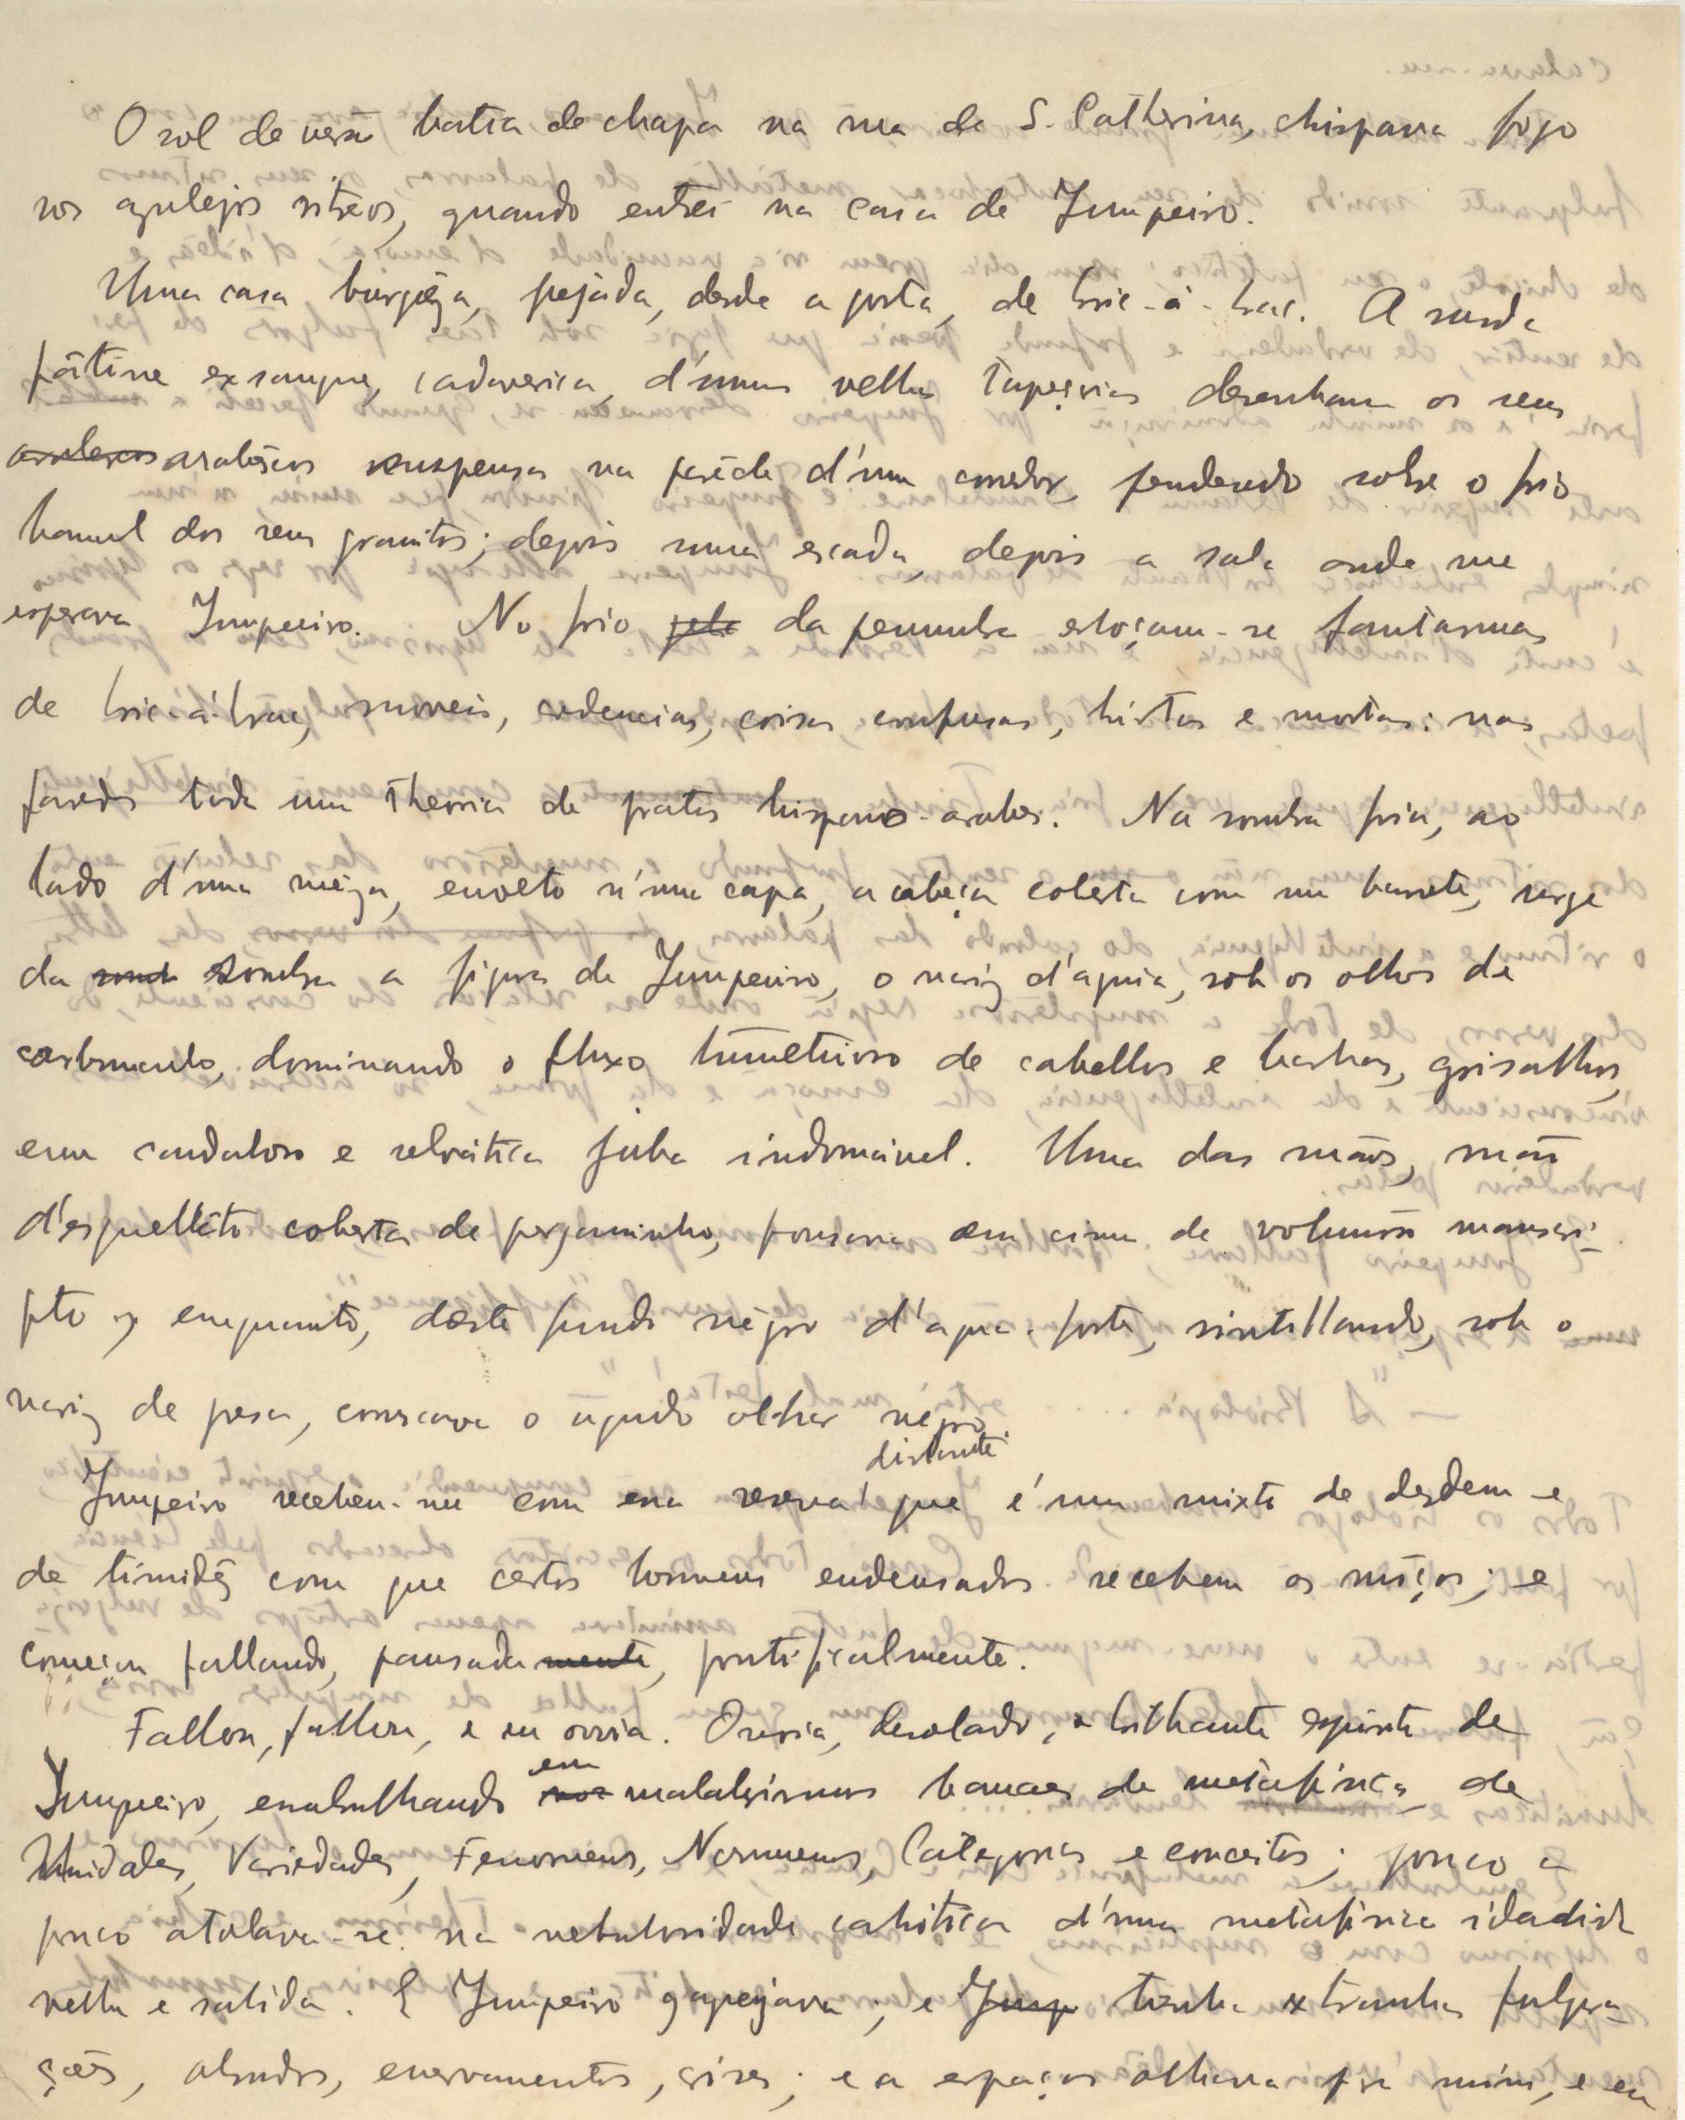 O sol de verão batia de chapa na rua de S. Catherina, chispava fogo
nos azulejos vitreos, quando entrei na casa de Junqueiro.
Uma casa burguêza, pejada, desde a porta, de bric-à-brac. A surda
pátine exsangue, cadaverica, d'umas velhas tapeçarias desenham os seus
arabescos suspensa na parêde d'um corredor, pendendo sobre o frio
banal dos seus granitos; depois uma escada, depois a sala onde me
esperava Junqueiro. No frio da penumbra esboçam-se fantasmas
de bric-á-brac, moveis, credencias, coisas confusas, hirtas e mortas: nas
paredes toda uma theoria de pratos hispano-arabes. Na sombra fria, ao
lado d'uma mêza, envolto n'uma capa, a cabeça coberta com um barrete, surge
da sombra a figura de Junqueiro, o nariz d'aguia, sob os olhos de
carbunculo, dominando o fluxo tumultuoso de cabellos e barbas, grisalhos,
em caudalosa e selvática juba indomável. Uma das mãos, mão
d'esquelêto coberta de pergaminho, pousava em cima de volumoso manuscri-
pto enquanto, dêste fundo négro d'agua-forte, sintillando, sob o
nariz de presa, coruscava o agudo olhar négro.
Junqueiro recebeu-me com essa reserva distante que é um mixto de desdem e
de timidêz com que certos homens endeusados recebem os môços; e
começou fallando, pausada, pontificalmente.
Fallou, fallou, e eu ouvia. Ouvia, desolado, o brilhante espirito de
Junqueiro, enabulhando em malabarismos banaes de metafisica, de
Unidades, Variedades, Fenomenos, Noumenos, Categorias e conceitos; pouco a
pouco atolava-se na nebulosidade cahotica d'uma metafisica
velha e sabida. E Junqueiro gaguejava; e tinha extranhas fulgura-
ções, absurdos, enervamentos, crises; e a espaços olhava pra mim, e eu